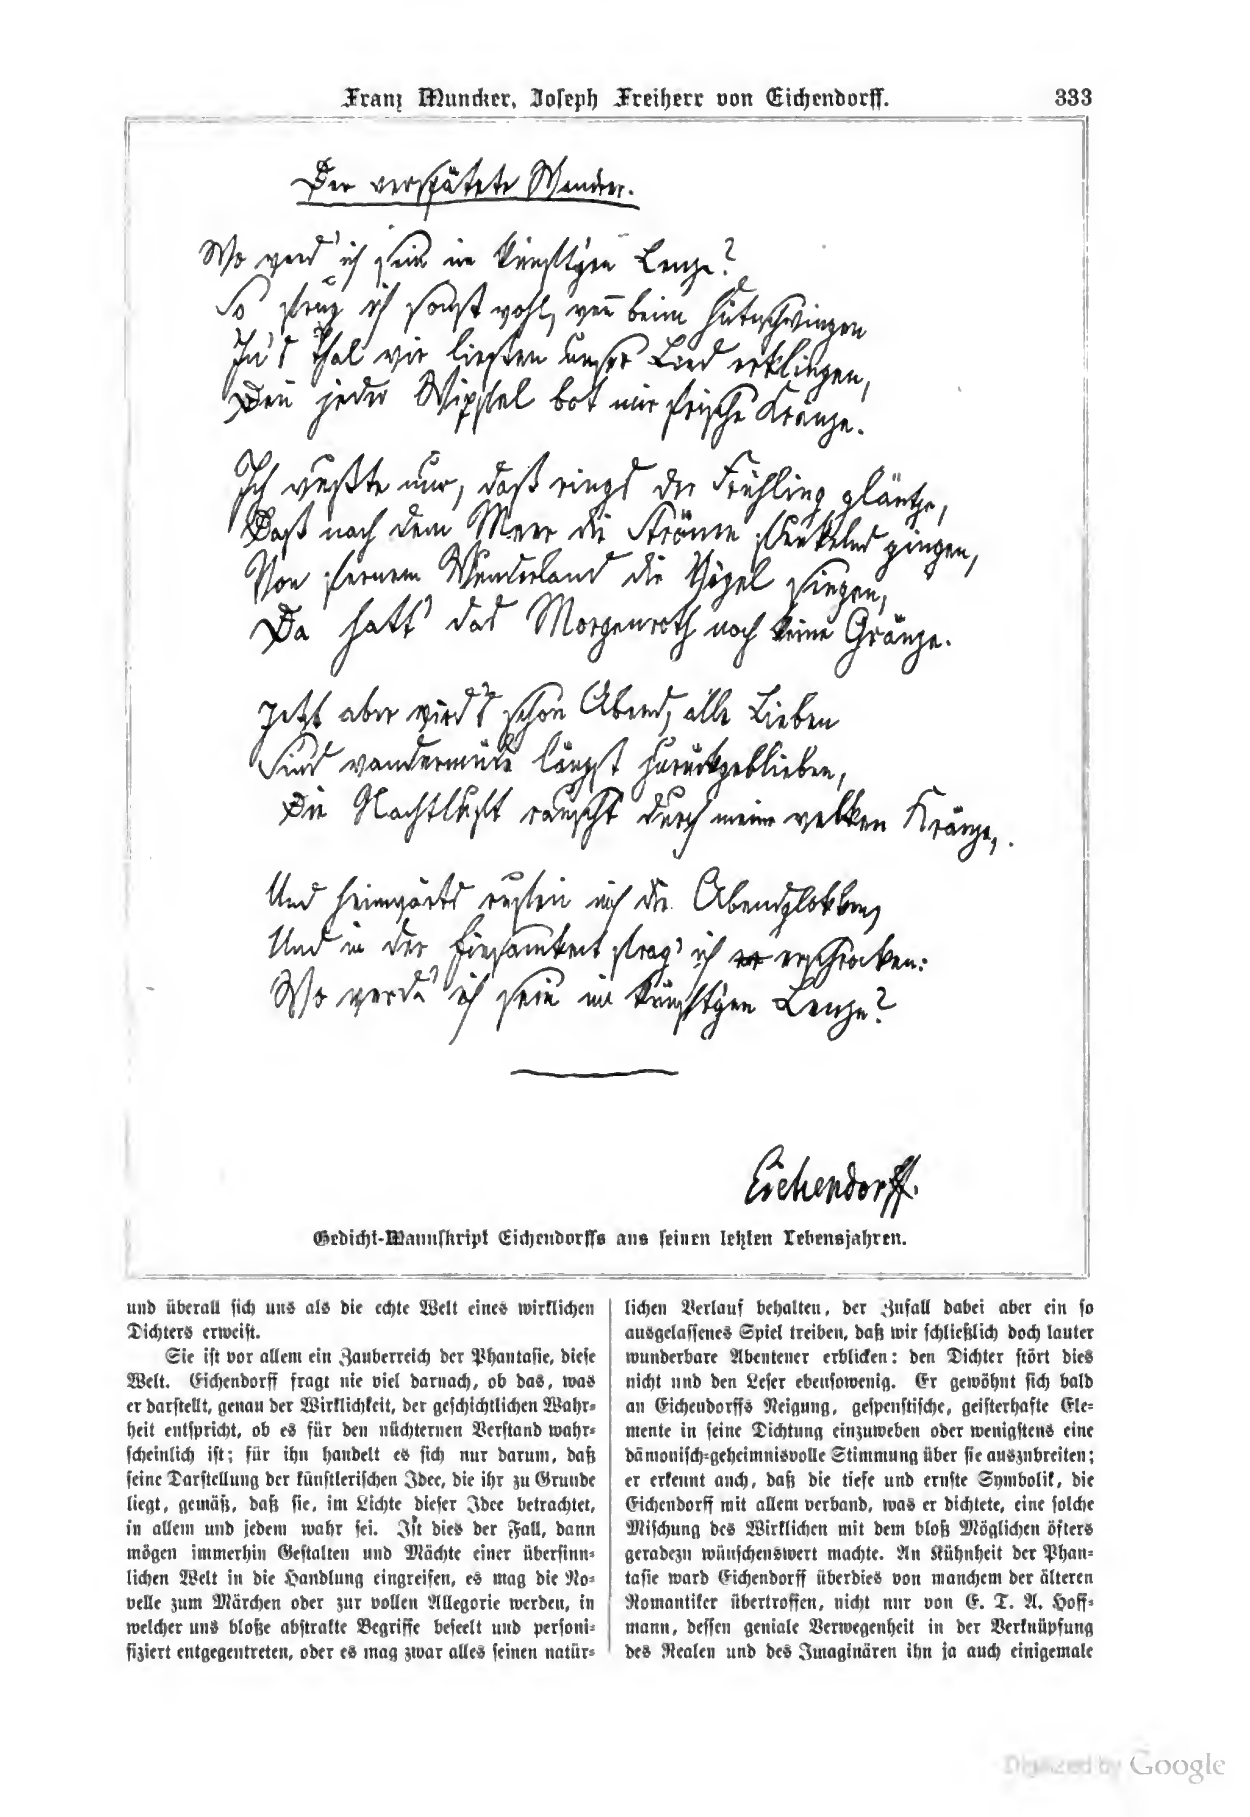 Franz Muncker, Joseph Freiherr von Eichendorff.
333
Der verspätete Wandrer.
Wo werd' ich sein im künft'gen Lenze?
So frug ich sonst wohl, wen̄ beim Hüteschwingen
In's Thal wir ließen unser Lied erklingen,
Den̄ jeder Wipfel bot mir frische Kränze.
Ich wußte nur, daß rings der Frühling glänze,
Daß nach dem Meer die Ströme funkelnd gingen,
Von fernem Wunderland die Vögel singen,
Da hatt' das Morgenroth noch keine Gränze.
Jetzt aber wird's schon Abend, alle Lieben
Sind wandermüde längst zurückgeblieben,
Die Nachtluft rauscht durch meine welken Kränze,
Und heimwärts rufen mich die Abendglokken,
Und in der Einsamkeit frag' ich erschrocken:
Wo werde ich sein im künft'gen Lenze?
Eichendorff.
Gedicht-Manuskript Eichendorffs aus seinen letzten Lebensjahren.
und überall sich uns als die echte Welt eines wirklichen
Dichters erweist.
Sie ist vor allem ein Zauberreich der Phantasie, diese
Welt. Eichendorff fragt nie viel darnach, ob das, was
er darstellt, genau der Wirklichkeit, der geschichtlichen Wahr-
heit entspricht, ob es für den nüchternen Verstand wahr-
scheinlich ist; für ihn handelt es sich nur darum, daß
seine Darstellung der künstlerischen Idee, die ihr zu Grunde
liegt, gemäß, daß sie, im Lichte dieser Idee betrachtet,
in allem und jedem wahr sei. Ist dies der Fall, dann
mögen immerhin Gestalten und Mächte einer übersinn-
lichen Welt in die Handlung eingreifen, es mag die No-
velle zum Märchen oder zur vollen Allegorie werden, in
welcher uns bloße abstrakte Begriffe beseelt und personi-
fiziert entgegentreten, oder es mag zwar alles seinen natür-
lichen Verlauf behalten, der Zufall dabei aber ein so
ausgelassenes Spiel treiben, daß wir schließlich doch lauter
wunderbare Abenteuer erblicken: den Dichter stört dies
nicht und den Leser ebensowenig. Er gewöhnt sich bald
an Eichendorffs Neigung, gespenstische, geisterhafte Ele-
mente in seine Dichtung einzuweben oder wenigstens eine
dämonisch-geheimnisvolle Stimmung über sie auszubreiten;
er erkennt auch, daß die tiefe und ernste Symbolik, die
Eichendorff mit allem verband, was er dichtete, eine solche
Mischung des Wirklichen mit dem bloß Möglichen öfters
geradezu wünschenswert machte. An Kühnheit der Phan-
tasie ward Eichendorff überdies von manchem der älteren
Romantiker übertroffen, nicht nur von E. T. A. Hoff-
mann, dessen geniale Verwegenheit in der Verknüpfung
des Realen und des Imaginären ihn ja auch einigemale
Digitized by Google